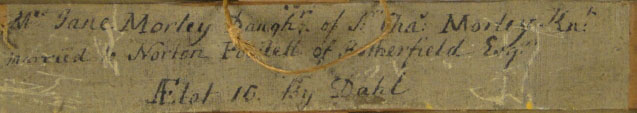 Mrs Jane Morley Daughr. of Sr. Thas. Morley Knt.
married to Norton Powlett of Rotherfield Esqr.
Ætat 16. By Dahl